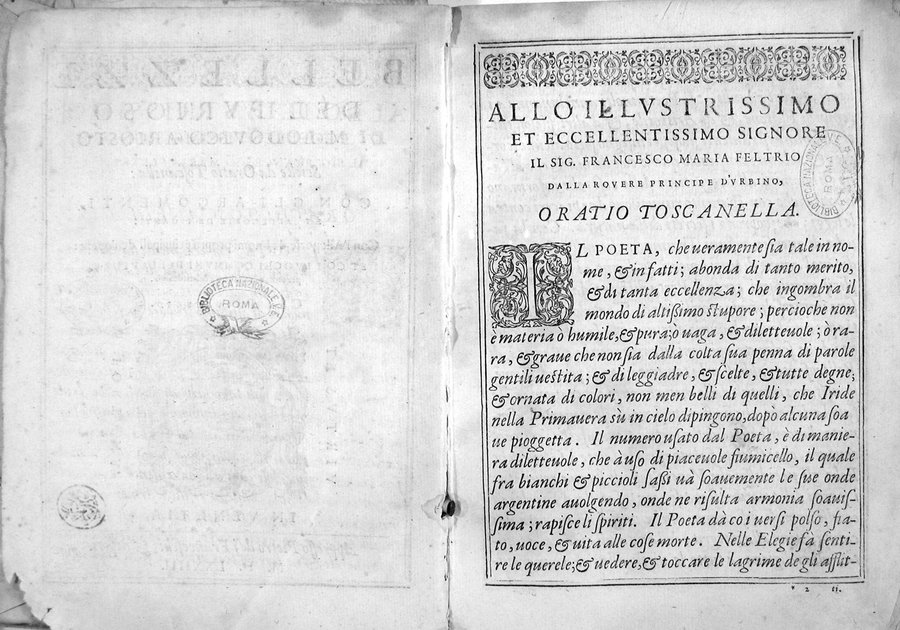 BIBLIOTECA NAZIONALE V.E.
ROMA
ALLO ILLVSTRISSIMO
ET ECCELLENTISSIMO SIGNORE
IL SIG. FRANCESCO MARIA FELTRIO
DALLA ROVERE PRINCIPE D'VRBINO,
ORATIO TOSCANELLA.
BIBLIOTECA NAZIONALE V.E.
ROMA
IL POETA, che ueramente sia tale in no-
me, & in fatti; abonda di tanto merito,
& di tanta eccellenza; che ingombra il
mondo di altißimo stupore; percioche non
è materia ò humile, & pura; ò uaga, & diletteuole; ò ra-
ra, & graue che non sia dalla colta sua penna di parole
gentili uestita; & di leggiadre, & scelte, & tutte degne;
& ornata di colori, non men belli di quelli, che Iride
nella Primauera sù in cielo dipingono, dopò alcuna soa
ue pioggetta. Il numero usato dal Poeta, è di manie-
ra diletteuole, che à uso di piaceuole fiumicello, il quale
fra bianchi & piccioli saßi uà soauemente le sue onde
argentine auolgendo, onde ne risulta armonia soauis-
sima; rapisce li spiriti. Il Poeta dà co i uersi polso, fia-
to, uoce, & uita alle cose morte. Nelle Elegie fà senti-
re le querele; & uedere, & toccare le lagrime de gli afflit-
* 2 II.